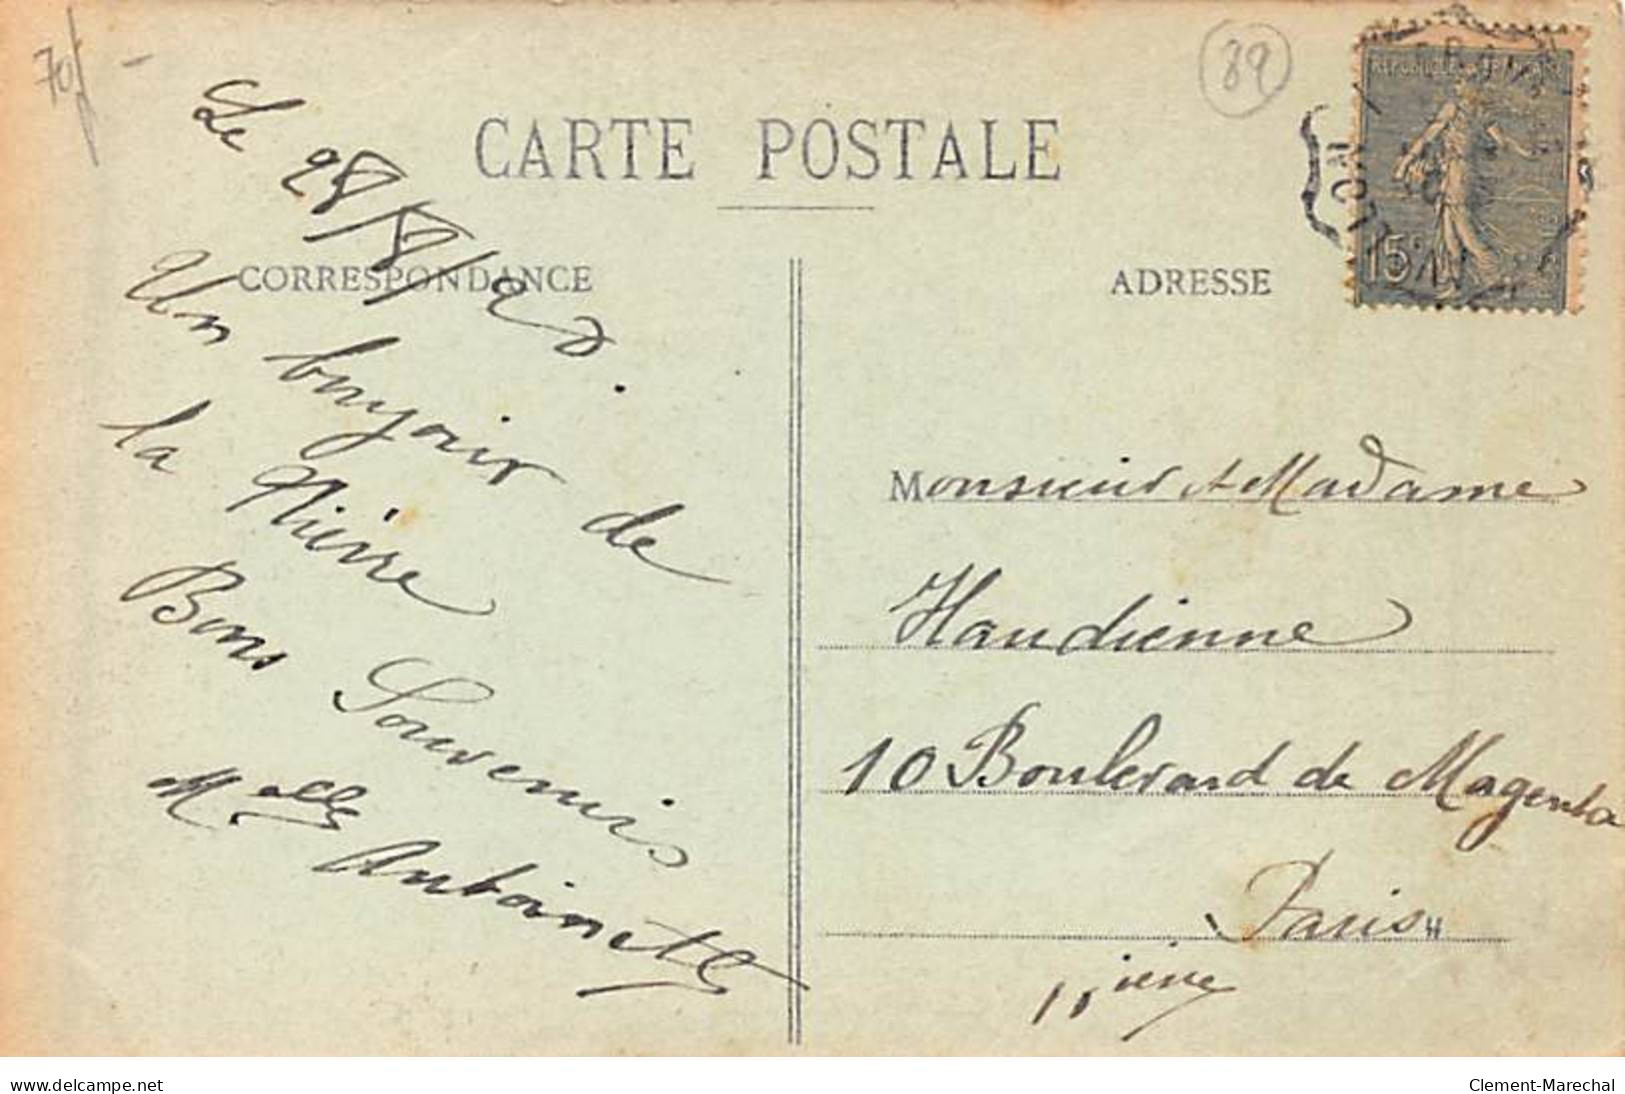 70f -
89
CARTE POSTALE
CORRESPONDANCE
ADRESSE
REPUBLIQUE FRANÇAISE
15c
Le 28/8/20.
Un bonjour de
la Nièvre
Bons Souvenirs
Melle Antoinette
Monsieur et Madame
Haudienne
10 Boulevard de Magenta
Paris
ième
www.delcampe.net
Clement-Marechal